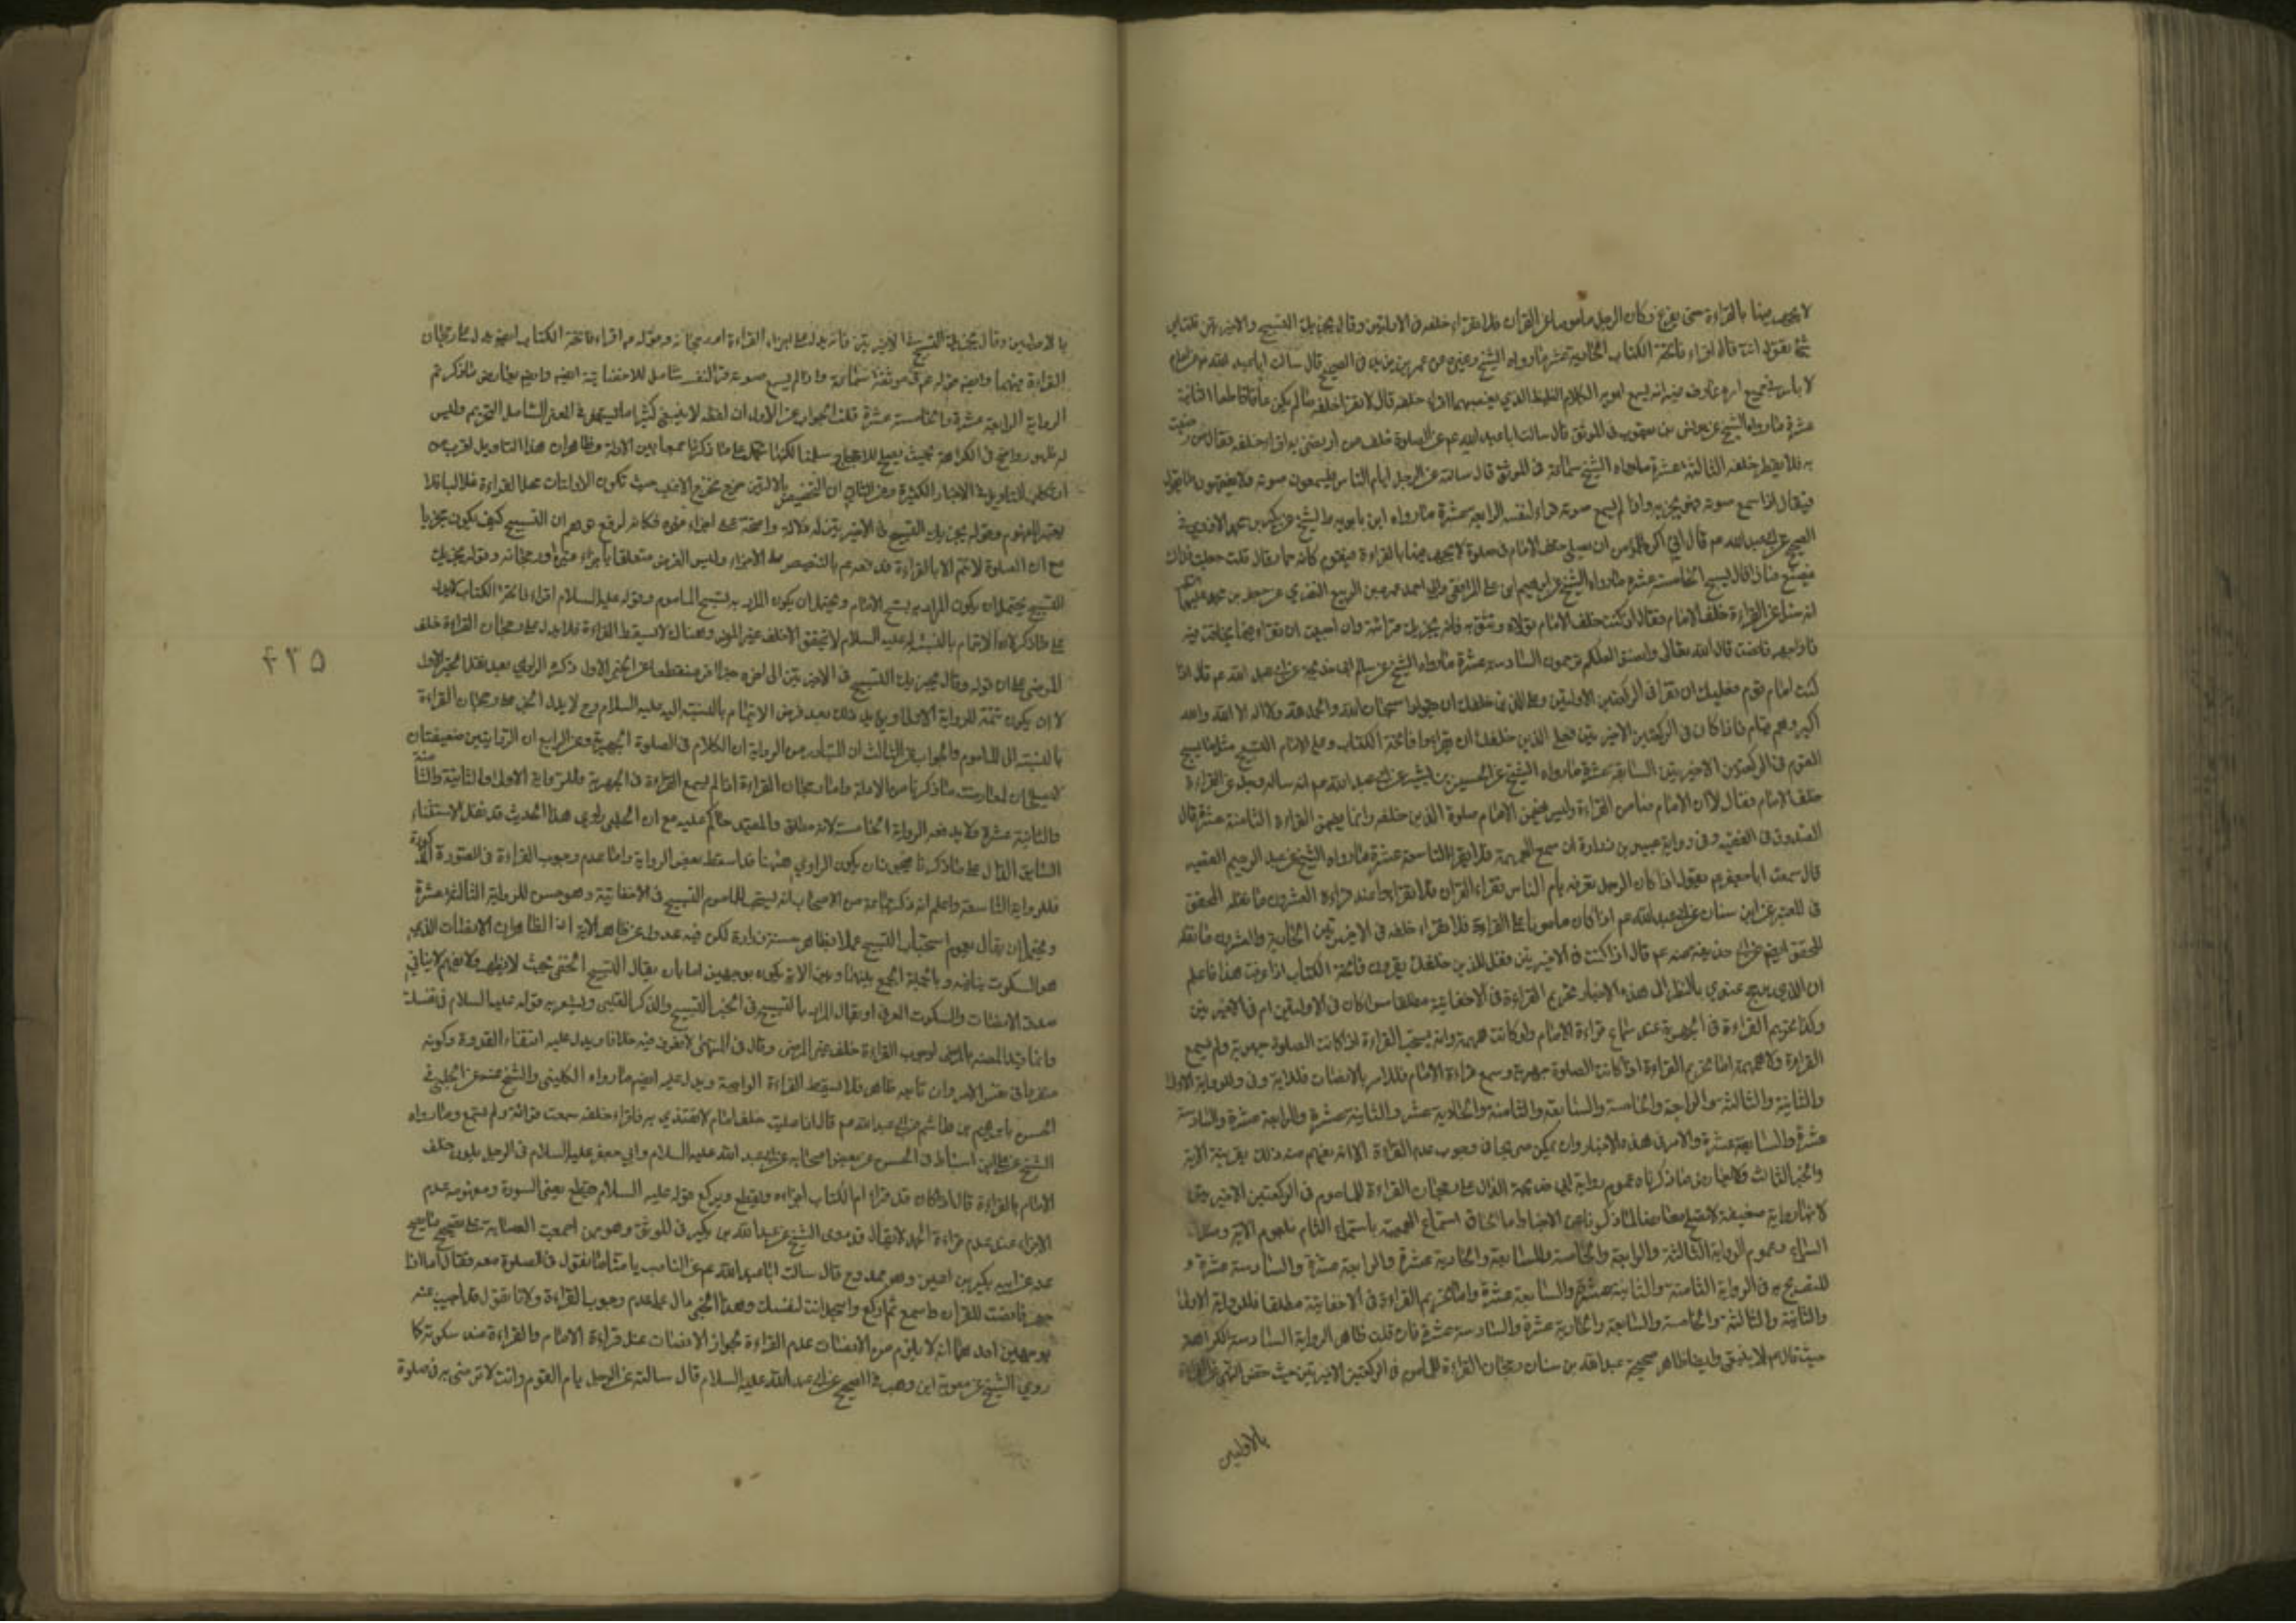 لا يجهر فيها بالقراءة حتى يفرغ وكان الرجل مأمونا على القرآن فلا تقراء خلفه في الاولتين وقال يجزيك التسبيح والاخيرتين قلت اي
شئ تقول انت قال اقراء فاتحة الكتاب الحادية عشر ما رواه الشيخ وغيره عن عمر بن يزيد في الصحيح قال سالت ابا عبد الله عن امام
لا باس به في جميع اموره عارف غير انه يسمع ابويه الكلام الغليظ الذي يغيضهما اقراء خلفه قال لا تقرأ خلفه ما لم يكن عاقا قاطعا الثانية
عشرة ما رواه الشيخ عن يونس بن يعقوب في الموثق قال سالت ابا عبد الله عم عن الصلوة خلف من ارتضي به اقراء خلفه فقال من رضيت
به فلا تقراء خلفه الثالثة عشرة ما رواه الشيخ سماعة في الموثق قال سالته عن الرجل ايام الناس فيسمعون صوته ولا يفقهون ما يقول
فقال اذا سمع صوته فهو يجزيه واذا لم يسمع صوته قراء لنفسه الرابعة عشرة ما رواه ابن بابويه والشيخ عن بكر بن محمد الازدي في
الصحيح عن ابي عبد الله عم قال اني اكره للمرء ان يصلي خلف الامام في صلوة لا يجهر فيها بالقراءة فيقوم كانه حمار قال قلت جعلت فداك
فيصنع ماذا قال يسبح الخامسة عشرة ما رواه الشيخ عن ابراهيم بن علي المرافقي وابي احمد عمرو بن الربيع البصري عن جعفر بن محمد عليهما السلم
انه سئل عن القراءة خلف الامام فقال اذا كنت خلف الامام تولاه وتثق به فانه يجزيك قرائته وان احببت ان تقراء فيما يخافت فيه
فاذا جهر فانصت قال الله تعالى وانصتوا لعلكم ترحمون السادسة عشرة ما رواه الشيخ عن سالم ابي خديجة عن ابي عبد الله عم قال اذا
كنت امام قوم فعليك ان تقرا في الركعتين الاولتين وعلى الذين خلفك ان يقولوا سبحان الله والحمد لله ولا اله الا الله والله
اكبر وهم قيام فاذا كان في الركعتين الاخيرتين فعلى الذين خلفك ان يقراوا فاتحة الكتاب وعلى الامام التسبيح مثل ما يسبح
القوم في الركعتين الاخيرتين السابعة عشرة ما رواه الشيخ عن الحسين بن بشير عن ابي عبد الله عم انه ساله رجل عن القراءة
خلف الامام فقال لا ان الامام ضامن القراءة وليس يضمن الامام صلوة الذين خلفه وانما يضمن القراءة الثامنة عشرة قال
الصدوق في الفقيه وفي رواية عبيد بن زرارة ان سمع الهمهمة فلا يقرا التاسعة عشرة ما رواه الشيخ عن عبد الرحيم القصير
قال سمعت ابا جعفر عم يقول اذا كان الرجل تعرفه يأم الناس تقراء القرآن فلا تقراء واعتد بقراءته العشرون ما نقله المحقق
في المعتبر عن ابن سنان عن ابي عبد الله عم اذا كان مأمونا على القراءة فلا تقراء خلفه في الاخيرتين الحادية والعشرون ما نقله
المحقق ايضا عن ابي خديجة عنه عم قال اذا كنت في الاخيرتين فقل للذين خلفك يقرون فاتحة الكتاب اذا عرفت هذا فاعلم
ان الذي يرجح عندي بالنظر الى هذه الاخبار تحريم القراءة في الاخفاتية مطلقا سوا كان في الاولتين ام في الاخيرتين
وكذا تحريم القراءة في الجهرية عند سماع قراءة الامام ولو كانت همهمة وانه يستحب القراءة اذا كانت الصلوة جهرية ولم يسمع
القراءة ولا همهمة اما تحريم القراءة اذا كانت الصلوة جهرية وسمع قراءة الامام فللامر بالانصات فللاية وفي وللرواية الاولى
والثانية والثالثة والرابعة والخامسة والسابعة والثامنة والحادية عشر والثانية عشرة والرابعة عشرة والسادسة
عشرة والسابعة عشرة والامر في هذه الاخبار وان لم يكن صريحا في وجوب عدم القراءة الا انه يفهم منه ذلك بقرينة الاية
والخبر الثالث ولا يعارض ما ذكرناه عموم رواية ابي خديجة الدال على رجحان القراءة للماموم في الركعتين الاخيرتين
لانها رواية ضعيفة لا تصلح معارضا لما ذكرنا من الاخبار اما الحاق استماع الهمهمة باستماع التام فلعموم الاية وصدق
السماع وعموم الرواية الثالثة والرابعة والخامسة والسابعة والحادية عشرة والرابعة عشرة والسادسة عشرة و
للتصريح به في الرواية الثامنة والثانية عشرة والسابعة عشرة واما تحريم القراءة في الاخفاتية مطلقا فللرواية الاولى
والثانية والثالثة والخامسة والسابعة والحادية عشرة والسادسة عشرة فان قلت ظاهر الرواية السادسة الكراهة
حيث قال عم لا ينبغي وايضا ظاهر صحيحة عبد الله بن سنان رجحان القراءة للماموم في الركعتين الاخيرتين حيث خص النهي عن القراءة
بالاولتين
بالاولتين وقال يجزيك التسبيح في الاخيرتين فانه يدل على اجزاء القراءة امر رجحانه وقوله عم اقراء فاتحة الكتاب ايضا يدل على رجحان
القراءة فيهما وايضا قوله عم في موثقة سماعة واذا لم يسمع صوته قراء لنفسه شامل للاخفاتية ايضا وايضا يعارض ما ذكرتم
الرواية الرابعة عشرة والخامسة عشرة قلت الجواب عن الاول ان لفظ لا ينبغي كثيرا ما يستعمل في المعنى الشامل للتحريم وليس
له ظهور واضح في الكراهة بحيث يصلح للاحتجاج سلمنا لكنها تحمل على ما ذكرنا جمعا بين الادلة وظاهر ان هذا التاويل اقرب من
ارتكاب التاويل في الاخبار الكثيرة وعن الثاني ان التخصيص بالاولتين خرج مخرج الاغلب حيث تكون الاولتان محلا للقراءة غالبا فلا
يعتبر المفهوم وقوله يجزيك التسبيح في الاخيرتين له دلالة واضحة على اجزاء غيره فكانه لرفع توهم ان التسبيح كيف يكون مجزيا
مع ان الصلوة لا تتم الا بالقراءة فدفعه عم بالتنصيص على الاجزاء وليس الغرض متعلقا باجزاء غيره او رجحانه وقوله يجزيك
التسبيح يحتمل ان يكون المراد به تسبيح الامام ويحتمل ان يكون المراد به تسبيح الماموم وقوله عليه السلام اقراء فاتحة الكتاب لا يدل
على ما ذكر لان الائتمام بالنسبة اليه عليه السلام لا يتحقق الا خلف غير المرضي وهناك لا يسقط القراءة فلا يدل على رجحان القراءة خلف
المرضي على ان قوله وقال يجزيك التسبيح في الاخيرتين الى اخره خبر اخر منقطعا عن الخبر الاول ذكره الراوي بعد نقل الخبر الاول
لا ان يكون تتمة للرواية الاولى ويؤيد ذلك بعد فرض الائتمام بالنسبة اليه عليه السلام وح لا يدل الخبر على رجحان القراءة
بالنسبة الى الماموم والجواب عن الثالث ان المتبادر من الرواية ان الكلام في الصلوة الجهرية وعن الرابع ان الروايتين ضعيفتان
لا يصلحان لمعارضة ما ذكرنا من الادلة واما رجحان القراءة اذا لم يسمع القراءة في الجهرية فللرواية الاولى والثانية والثامنة
والثانية عشرة ولا يدفعه الرواية الخامسة لانه مطلق والمقيد حاكم عليه مع ان الحلبي راوي هذا الحديث قد نقل الاستثناء
السابق الدال على ما ذكرنا فيجوز ان يكون الراوي ههنا قد اسقط بعض الرواية واما عدم وجوب القراءة في الصورة المذكورة
فللرواية التاسعة واعلم انه ذكر جماعة من الاصحاب انه يستحب للماموم التسبيح في الاخفاتية وهو حسن للرواية الثالثة عشرة
ويحتمل ان يقال بعموم استحباب التسبيح عملا بظاهر حسنة زرارة لكن فيه عدول عن ظاهر الاية اذ الظاهر ان الانصات الذي
هو السكوت ينافيه وبالجملة الجمع بينها وبين الاية يكون بوجهين اما بان يقال التسبيح الخفي بحيث لا يظهر ولا يفهم لا ينافي
صدق الانصات والسكوت العرفي او يقال المراد بالتسبيح في الخبر التسبيح والذكر القلبي ويشعر به قوله عليه السلام في نفسك
وانما قيد المصنف بالمرضي لوجوب القراءة خلف غير المرضي وقال في المنتهى لا نعرف فيه خلافا ويدل عليه انتفاء القدوة وكونه
منفردا في نفس الامر وان تابعه ظاهرا فلا تسقط القراءة الواجبة ويدل عليه ايضا ما رواه الكليني والشيخ عنه عن الحلبي في
الحسن بابراهيم بن هاشم عن ابي عبد الله عم قال اذا صليت خلف امام لا تقتدي به فاقراء خلفه سمعت قرائته او لم تسمع وما رواه
الشيخ عن علي بن اسباط في الحسن عن بعض اصحابه عن ابي عبد الله عليه السلام وابي جعفر عليه السلام في الرجل يكون خلف
الامام بالقراءة قال اذا كان قد قراء ام الكتاب اجزاءه ويقطع ويركع قوله عليه السلام يقطع يعني السورة ومفهومه عدم
الاجزاء عند عدم قراءة الحمد لا يقال قد روى الشيخ عن عبد الله بن بكير في الموثق وهو ممن اجمعت العصابة على تصحيح ما يصح
عنه عن ابيه بكير بن اعين وهو ممدوح قال سالت ابا عبد الله عم عن الناصب يأمنا ما نقول في الصلوة معه فقال اما اذا
جهر فانصت للقران واسمع ثم اركع واسجد انت لنفسك وهذا الخبر دال على عدم وجوب القراءة ولانا نقول قد اجيب عنه
بوجهين احدهما انه لا يلزم من الانصات عدم القراءة لجواز الانصات عند قراءة الامام والقراءة عند سكوته كما
روى الشيخ عن معوية ابن وهب في الصحيح عن ابي عبد الله عليه السلام قال سالته عن الرجل يام القوم وانت لا ترضى به في صلوة
۴۲۵